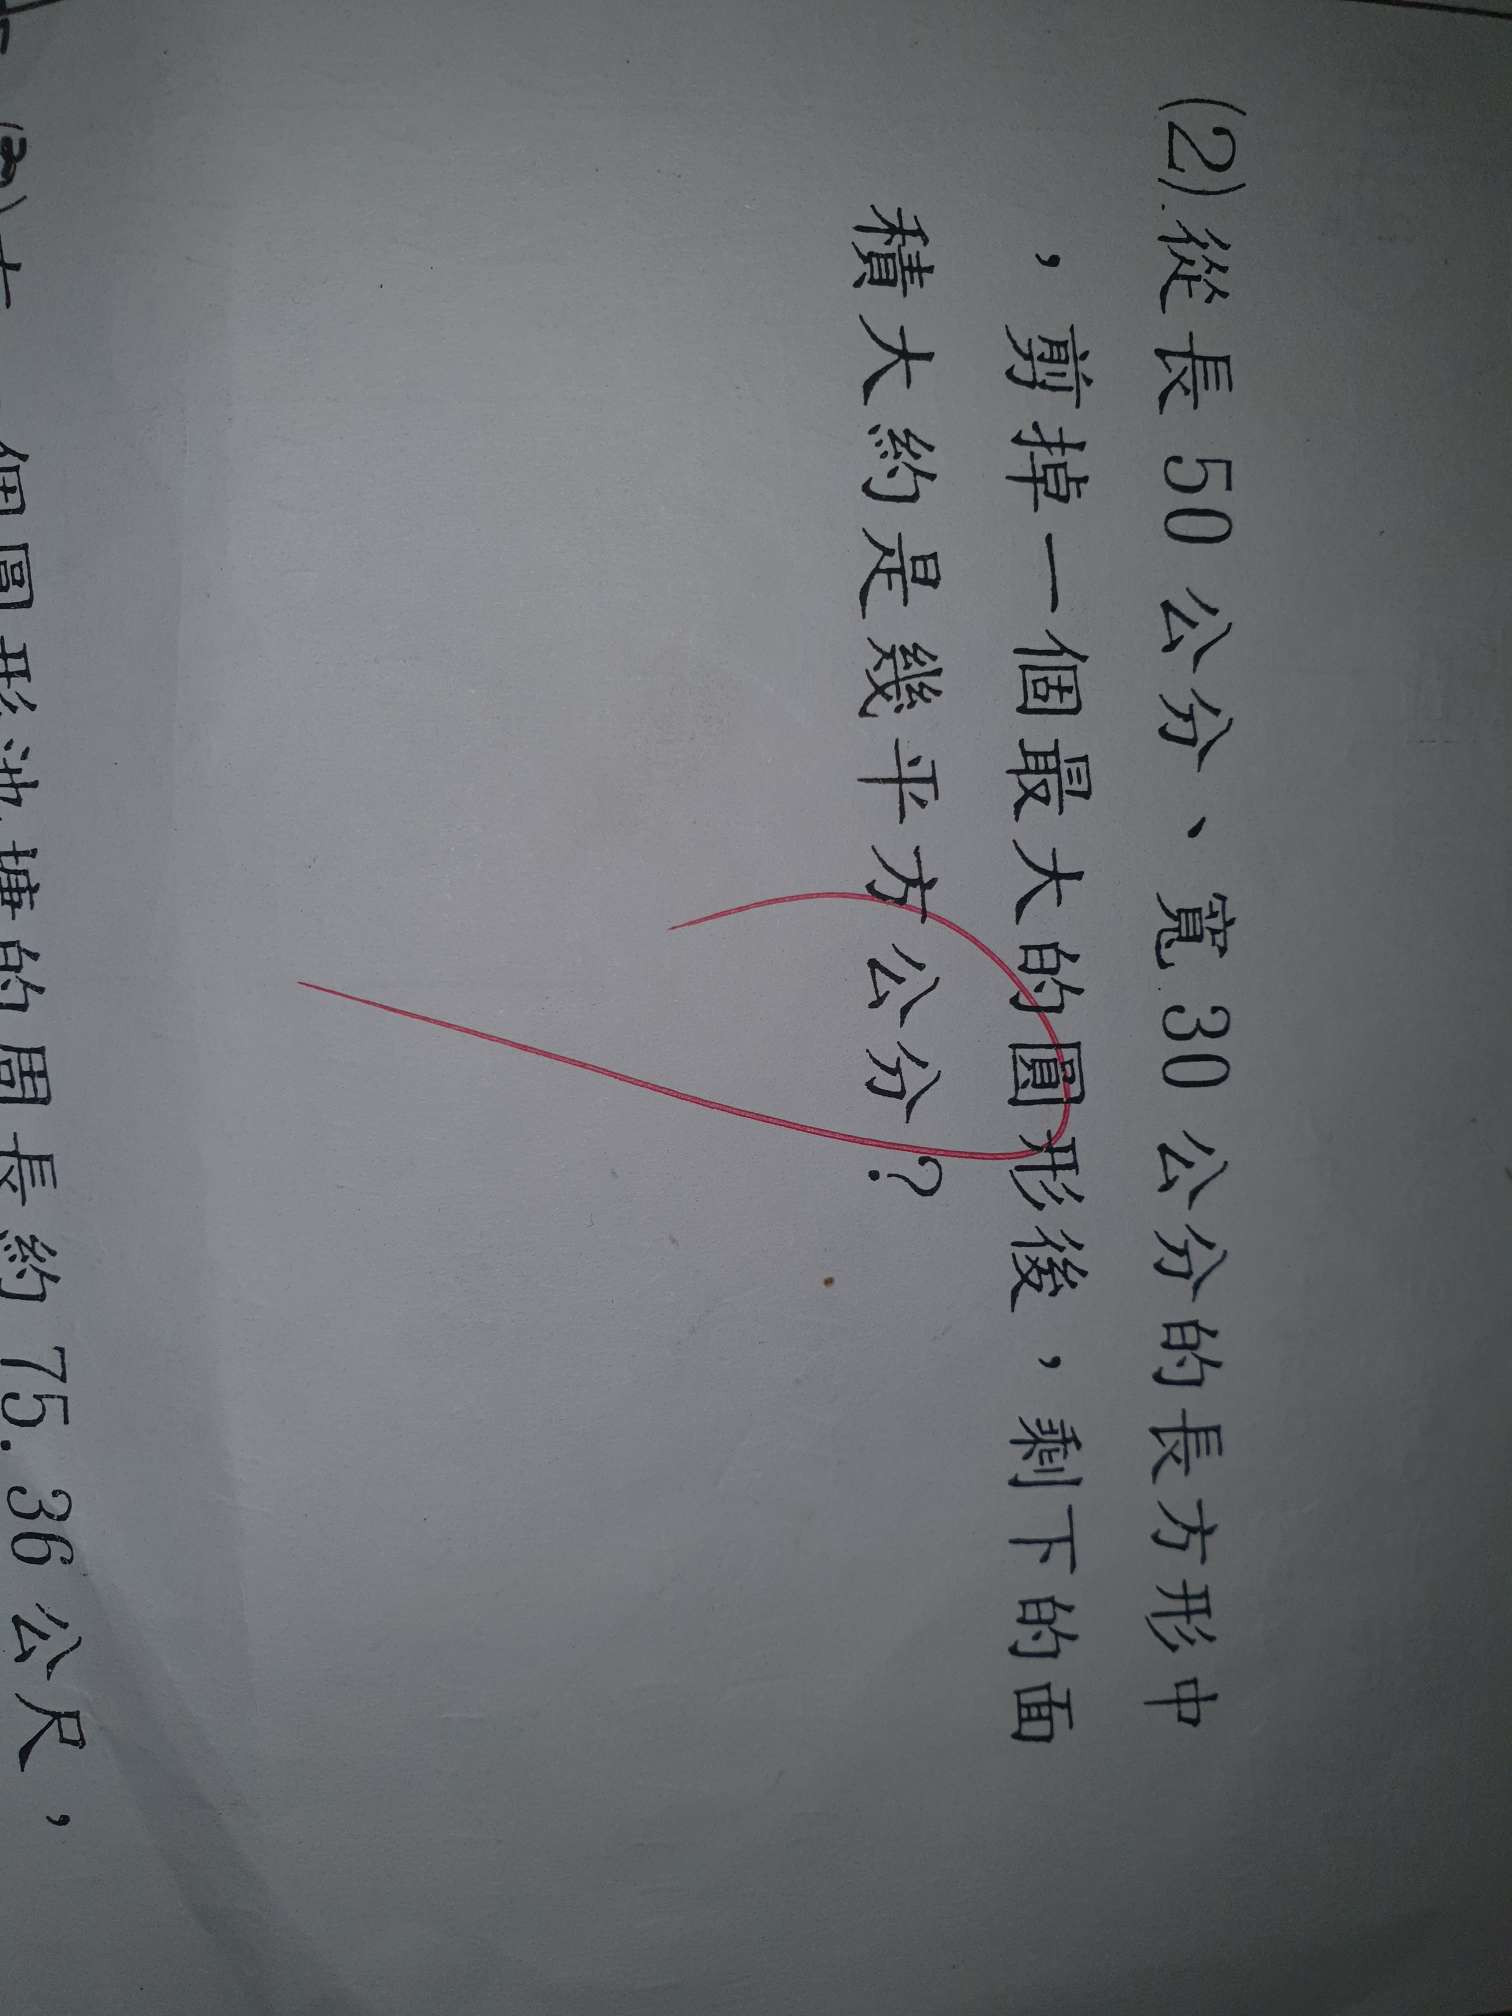 (2).從長 50 公分、寬 30 公分的長方形中
，剪掉一個最大的圓形後，剩下的面
積大約是幾平方公分？
個圓形池塘的周長約 75.36 公尺，